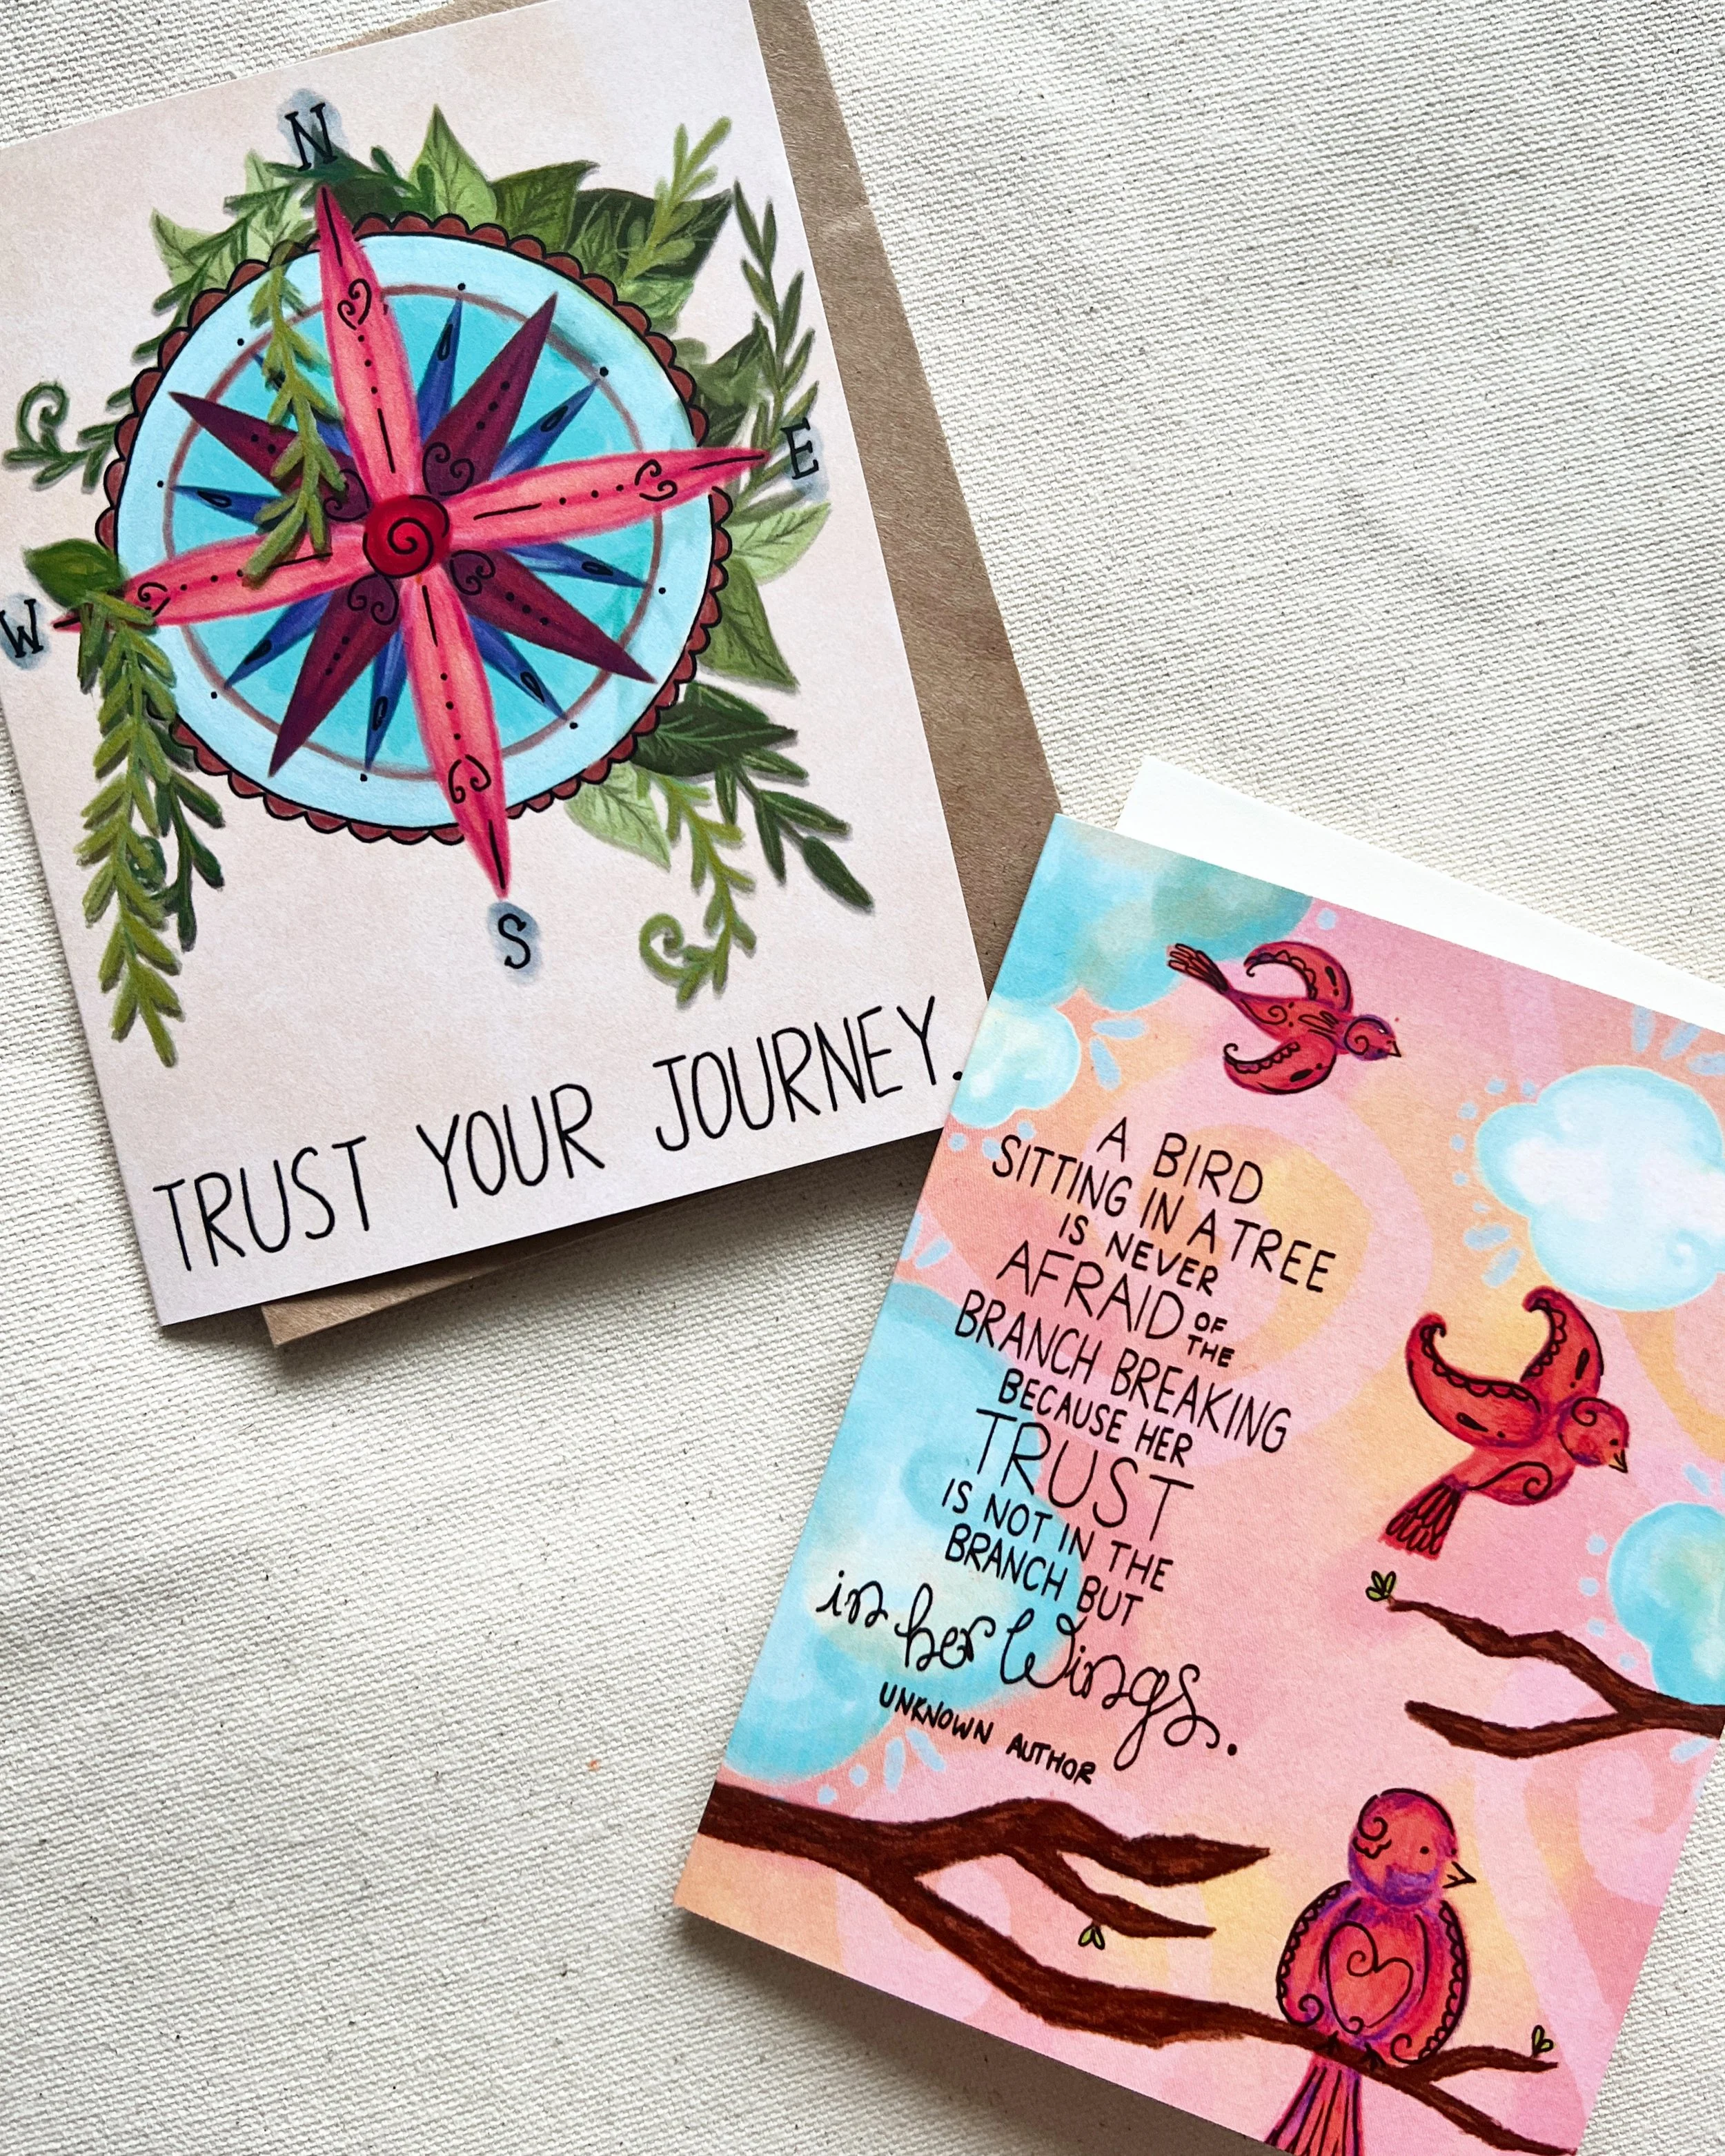 N
E
W
S
TRUST YOUR JOURNEY.
A BIRD
SITTING IN A TREE
IS NEVER
AFRAID OF THE
BRANCH BREAKING
BECAUSE HER
TRUST
IS NOT IN THE
BRANCH BUT
in her Wings.
UNKNOWN AUTHOR